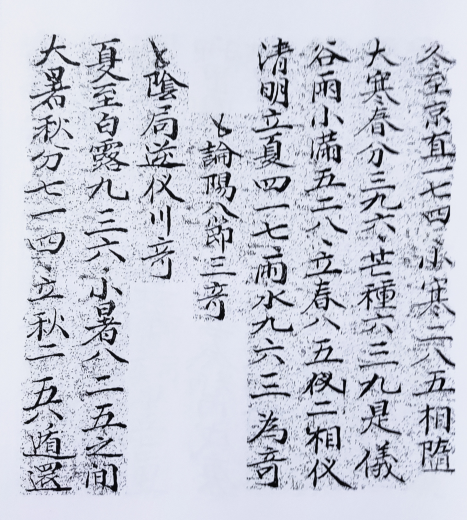 冬至京直一七四、小寒二八五相隨
大寒春分三九六、芒種六三九是儀
谷雨小滿五二八、立春八五仪二相仪
清明立夏四一七、雨水九六三為竒
論陽八節三竒
陰局逆仪川竒
夏至白露九三六、小暑八二五之间
大暑秋分七一四、立秋二五八遁還